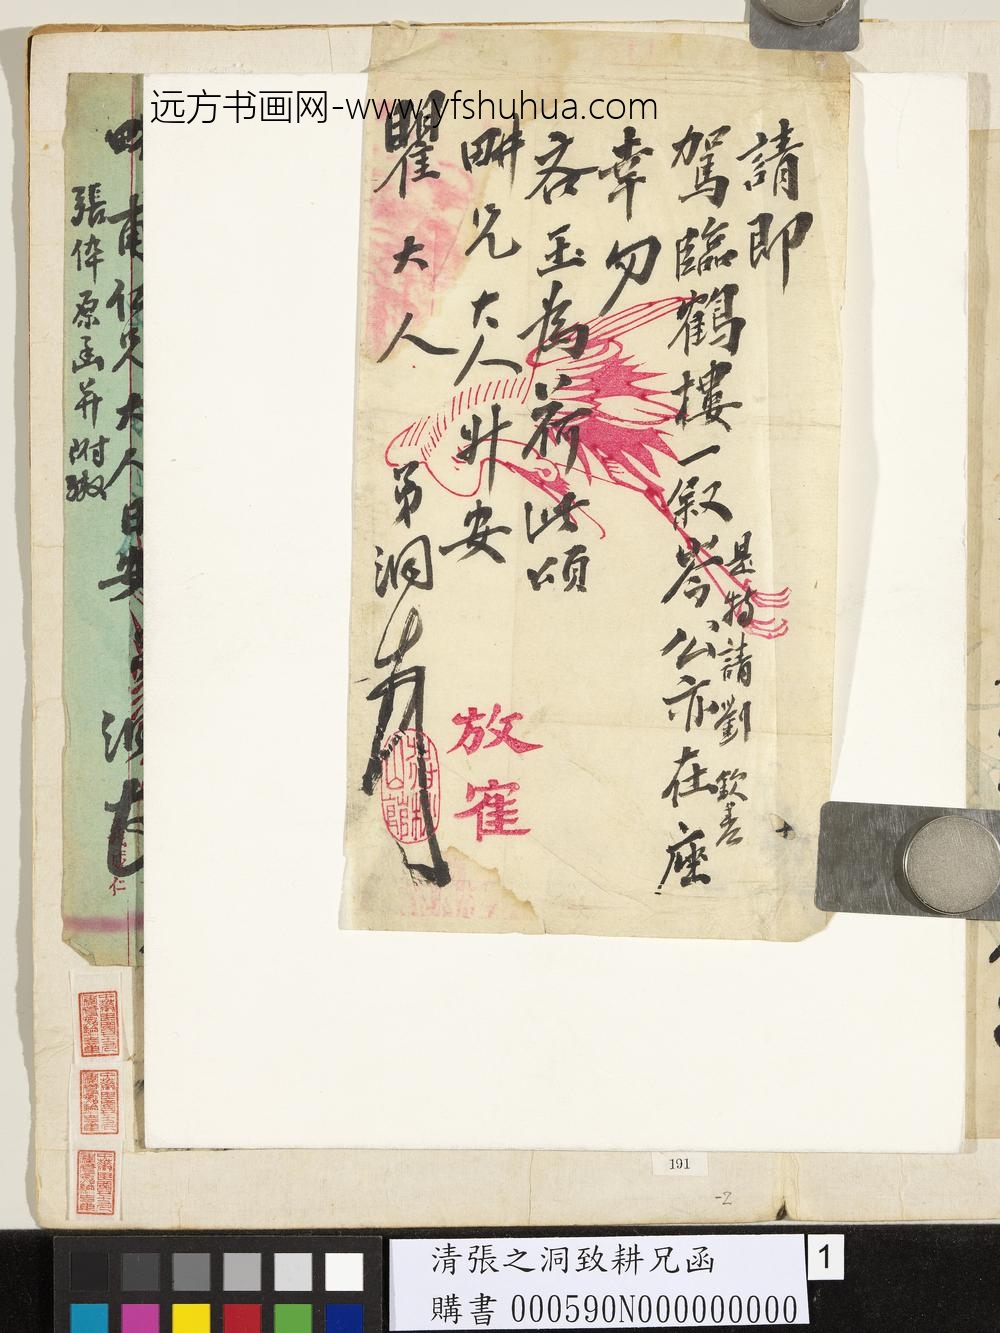 远方书画网-www.yfshuhua.com
請即
駕臨鶴樓一叙岑公亦在座
是特請劉欽差
幸勿
吝玉為荷此頌
畊兄大人升安
瞿大人
弟洞
放隺
張倅原函并附繳
仁兄大人日安
洞
仁
191
-2
清張之洞致耕兄函
購書 000590N000000000
1